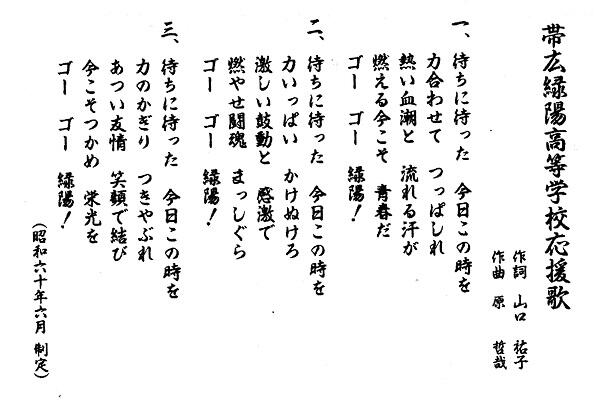 帯広緑陽高等学校応援歌
作詞 山口 祐子
作曲 原 哲哉
一、待ちに待った 今日この時を
力合わせて つっぱしれ
熱い血潮と 流れる汗が
燃える今こそ 青春だ
ゴー ゴー 緑陽!
二、待ちに待った 今日この時を
力いっぱい かけぬけろ
激しい鼓動と 感激で
燃やせ闘魂 まっしぐら
ゴー ゴー 緑陽!
三、待ちに待った 今日この時を
力のかぎり つきやぶれ
あつい友情 笑顔で結び
今こそつかめ 栄光を
ゴー ゴー 緑陽!
(昭和六十年六月 制定)